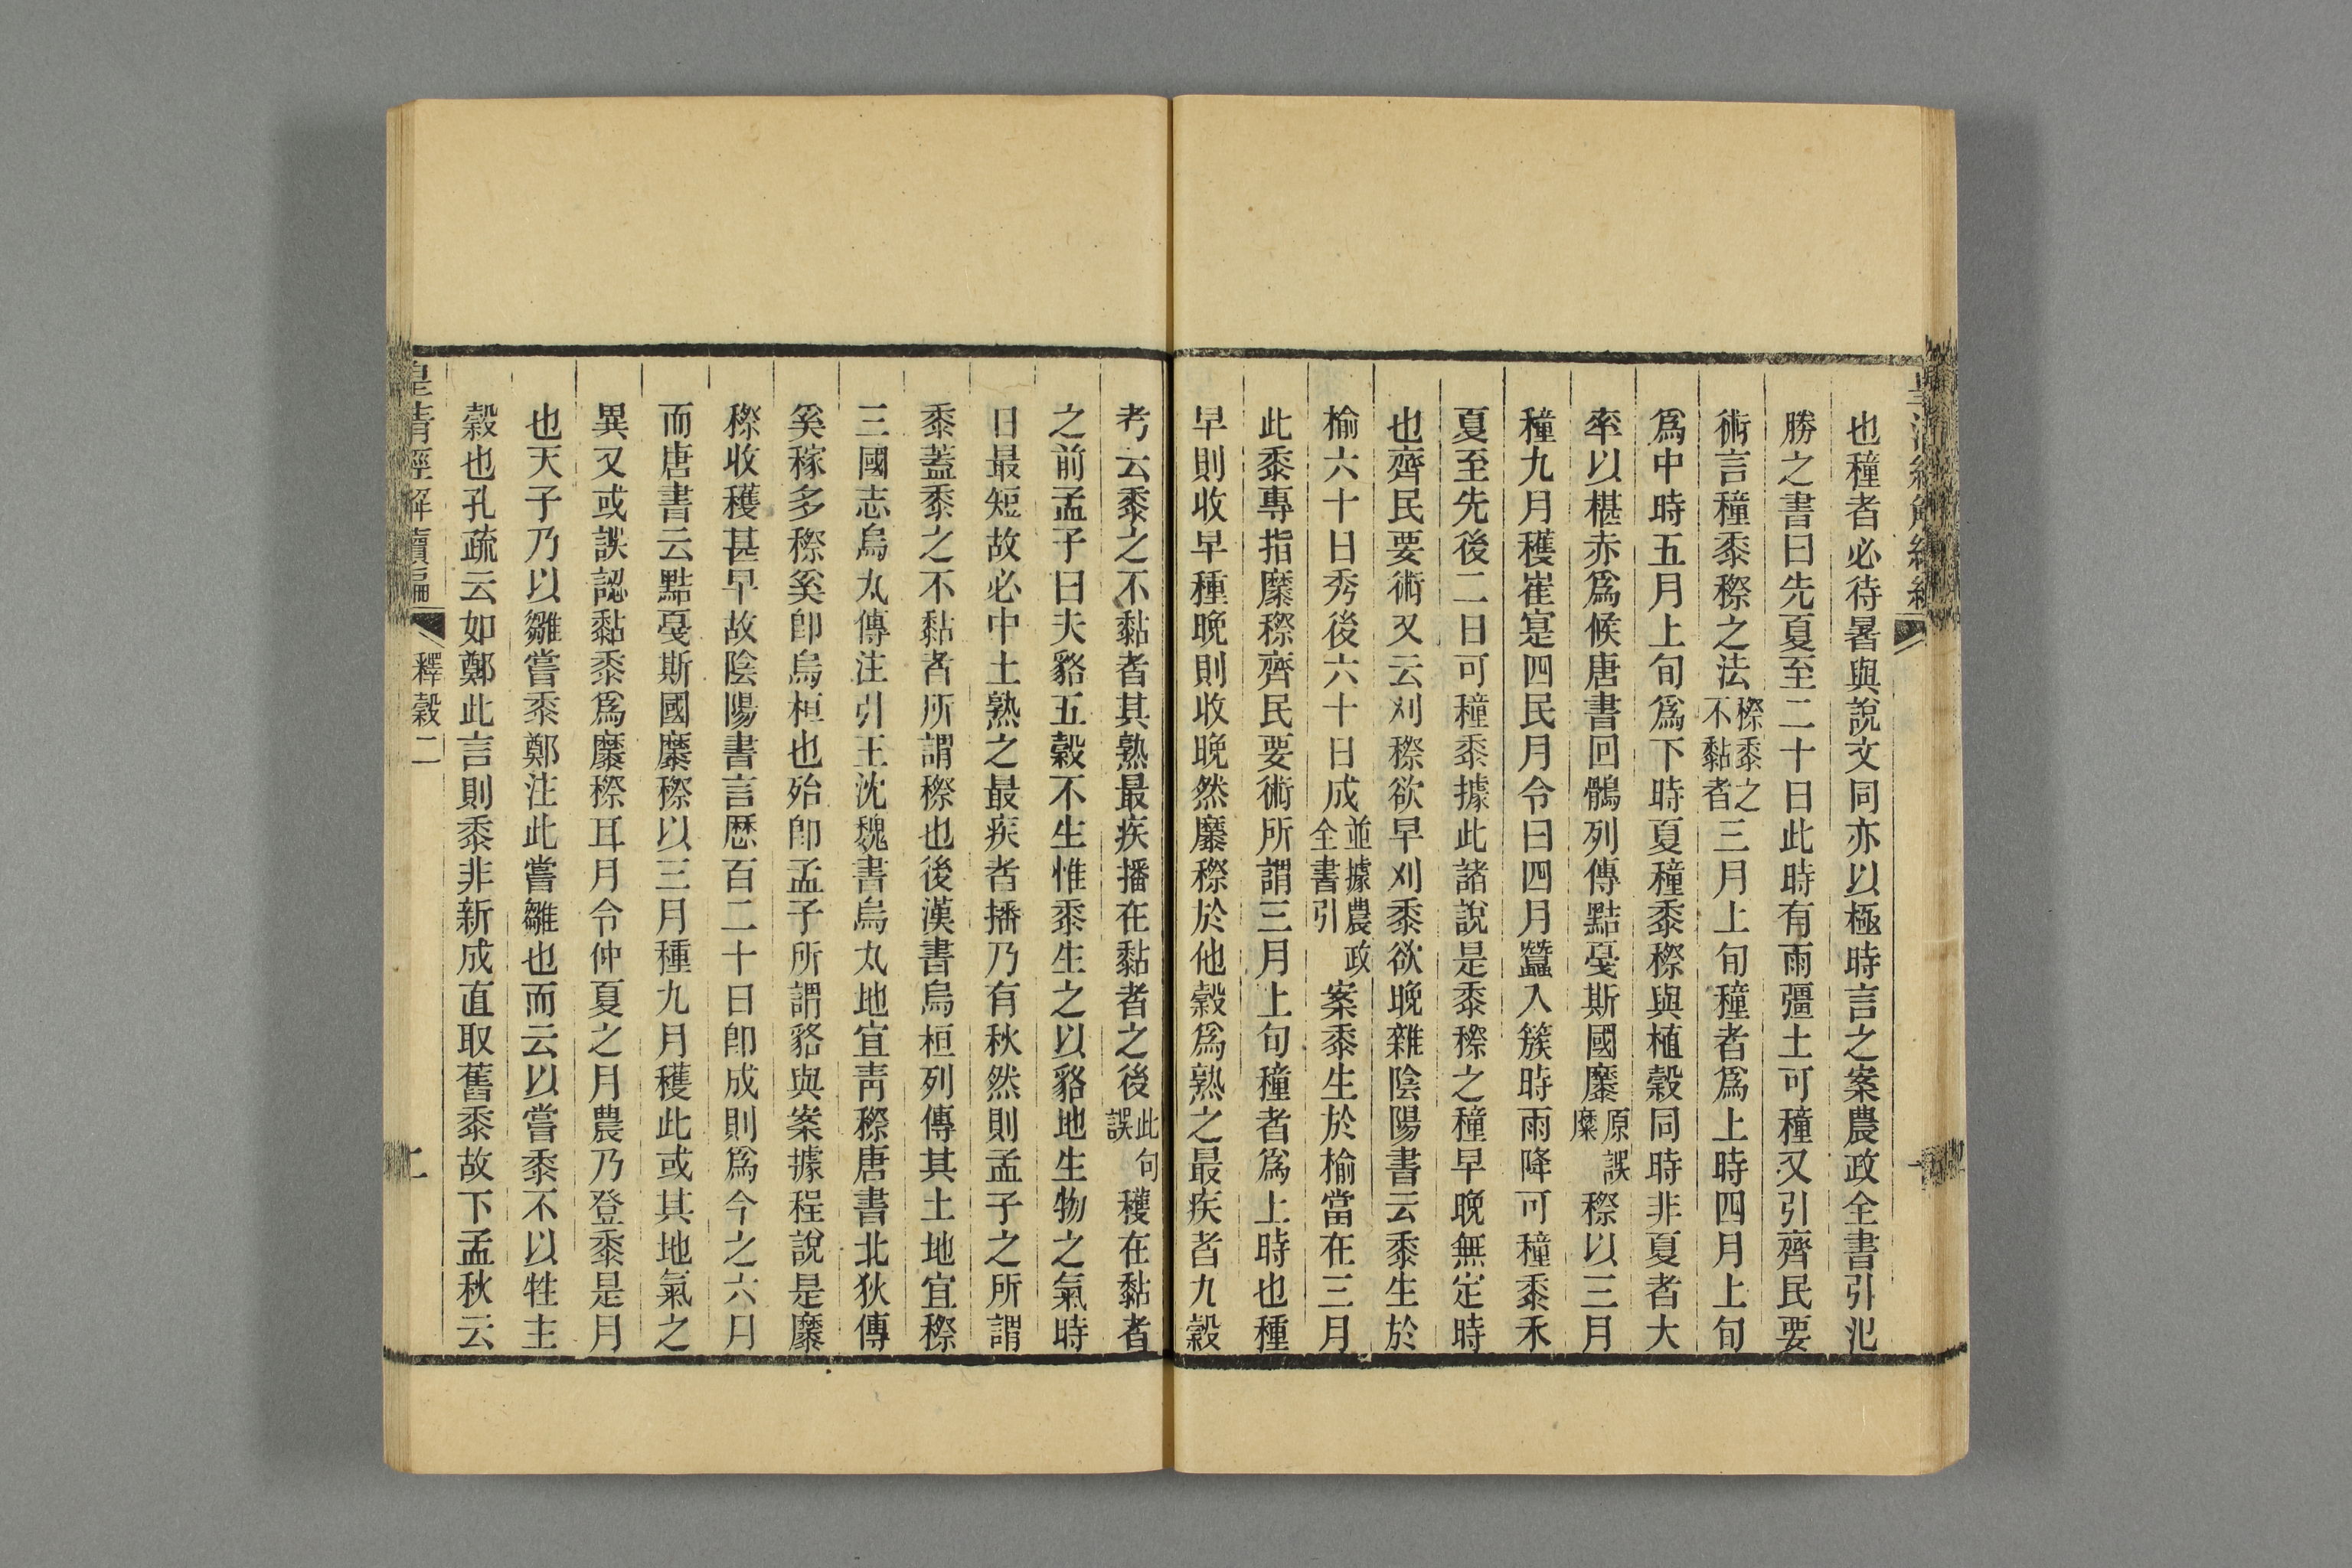 也穜者必待暑與說文同亦以極時言之案農政全書引氾
勝之書曰先夏至二十日此時有雨彊土可穜又引齊民要
術言穜黍穄之法穄黍之不黏者三月上旬穜者爲上時四月上旬
爲中時五月上旬爲下時夏穜黍穄與植穀同時非夏者大
率以椹赤爲候唐書回鶻列傳黠戞斯國穈原誤糜穄以三月
穜九月穫崔寔四民月令曰四月蠶入簇時雨降可穜黍禾
夏至先後二日可穜黍據此諸說是黍穄之穜早晚無定時
也齊民要術又云刈穄欲早刈黍欲晚雜陰陽書云黍生於
榆六十日秀後六十日成並據農政全書引案黍生於榆當在三月
此黍專指穈穄齊民要術所謂三月上旬穜者爲上時也種
早則收早種晚則收晚然穈穄於他穀爲熟之最疾者九穀
考云黍之不黏者其熟最疾播在黏者之後此句誤穫在黏者
之前孟子曰夫貉五穀不生惟黍生之以貉地生物之氣時
日最短故必中土熟之最疾者播乃有秋然則孟子之所謂
黍蓋黍之不黏者所謂穄也後漢書烏桓列傳其土地宜穄
三國志烏丸傳注引王沈魏書烏丸地宜靑穄唐書北狄傳
奚稼多穄奚卽烏桓也殆卽孟子所謂貉與案據程說是穈
穄收穫甚早故陰陽書言歷百二十日卽成則爲今之六月
而唐書云黠戞斯國穈穄以三月種九月穫此或其地氣之
異又或誤認黏黍爲穈穄耳月令仲夏之月農乃登黍是月
也天子乃以雛嘗黍鄭注此嘗雛也而云以嘗黍不以牲主
穀也孔疏云如鄭此言則黍非新成直取舊黍故下孟秋云
皇清經解續編
釋穀二
二